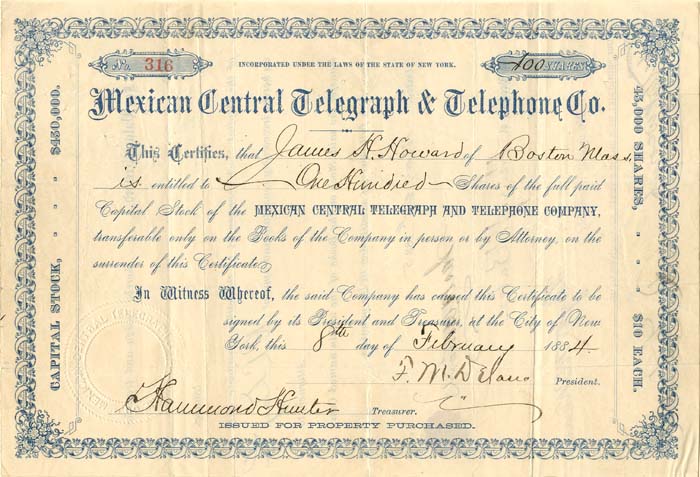 No. 316
INCORPORATED UNDER THE LAWS OF THE STATE OF NEW YORK.
100 SHARES
Mexican Central Telegraph & Telephone Co.
This Certifies, that James H. Howard of Boston Mass.
is entitled to One Hundred Shares of the full paid
Capital Stock of the MEXICAN CENTRAL TELEGRAPH AND TELEPHONE COMPANY,
transferable only on the Books of the Company in person or by Attorney, on the
surrender of this Certificate
In Witness Whereof, the said Company has caused this Certificate to be
signed by its President and Treasurer, at the City of New
York, this 8th day of February 1884.
F. M. Delano President.
Hammond Hunter Treasurer.
ISSUED FOR PROPERTY PURCHASED.
CAPITAL STOCK, $450,000.
45,000 SHARES, $10 EACH.